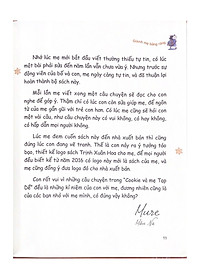 Nhớ lúc mẹ mới bắt đầu viết thường thiếu tự tin, có lúc
một bài phải sửa đến năm lần vẫn chưa vừa ý. Nhưng trước sự
động viên của bố và con, mẹ ngày càng tự tin, và đã thuận lợi
hoàn thành bộ sách này.
Mỗi lần mẹ viết xong một câu chuyện sẽ đọc cho con
nghe để góp ý. Thậm chí có lúc con còn sửa giúp mẹ, để ngôn
từ của mẹ gần gũi hơn với trẻ con. Có lúc con lại giúp mẹ cân
một vài câu, như câu chuyện này có vui không, có hay không,
có hấp dẫn mọi người không.
Lúc mẹ đem cuốn sách này đến nhà xuất bản thì cũng
đúng lúc con đang vẽ tranh. Thế là con nảy ra ý tưởng táo
bạo, thiết kế logo sách Trịnh Xuân Hoa cho mẹ, để mọi người
đều biết kể từ năm 2016 có logo này mới là sách của mẹ, và
mẹ cũng đồng ý đưa logo đó cho nhà xuất bản.
Con rất vui vì những câu chuyện trong "Cookie và mẹ "Tạp
Dề" đều là những kỉ niệm của con với mẹ, đương nhiên cũng là
của các bạn nhỏ với mẹ mình, có đúng vậy không?